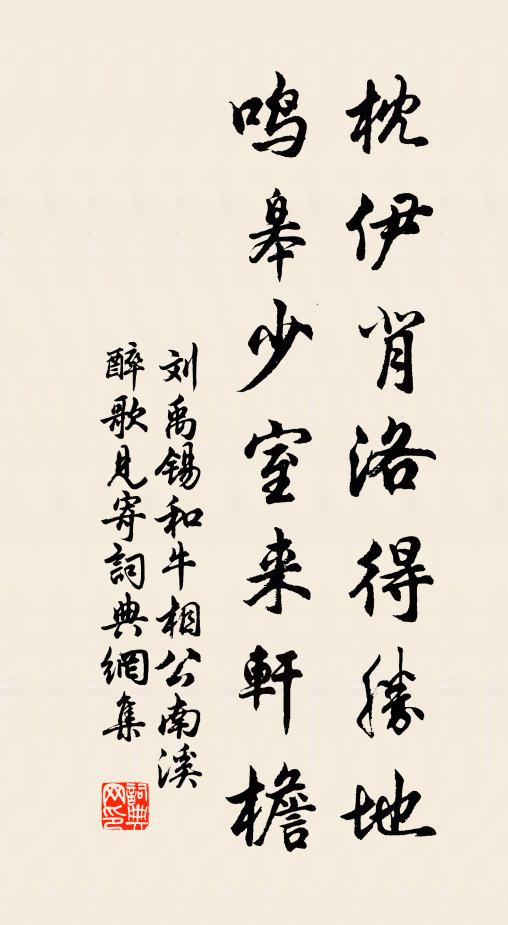 枕伊背洛得勝地
鸣皋少室来軒檐
刘禹錫和牛相公南溪
醉歌見寄詞典網集
詞典
网印